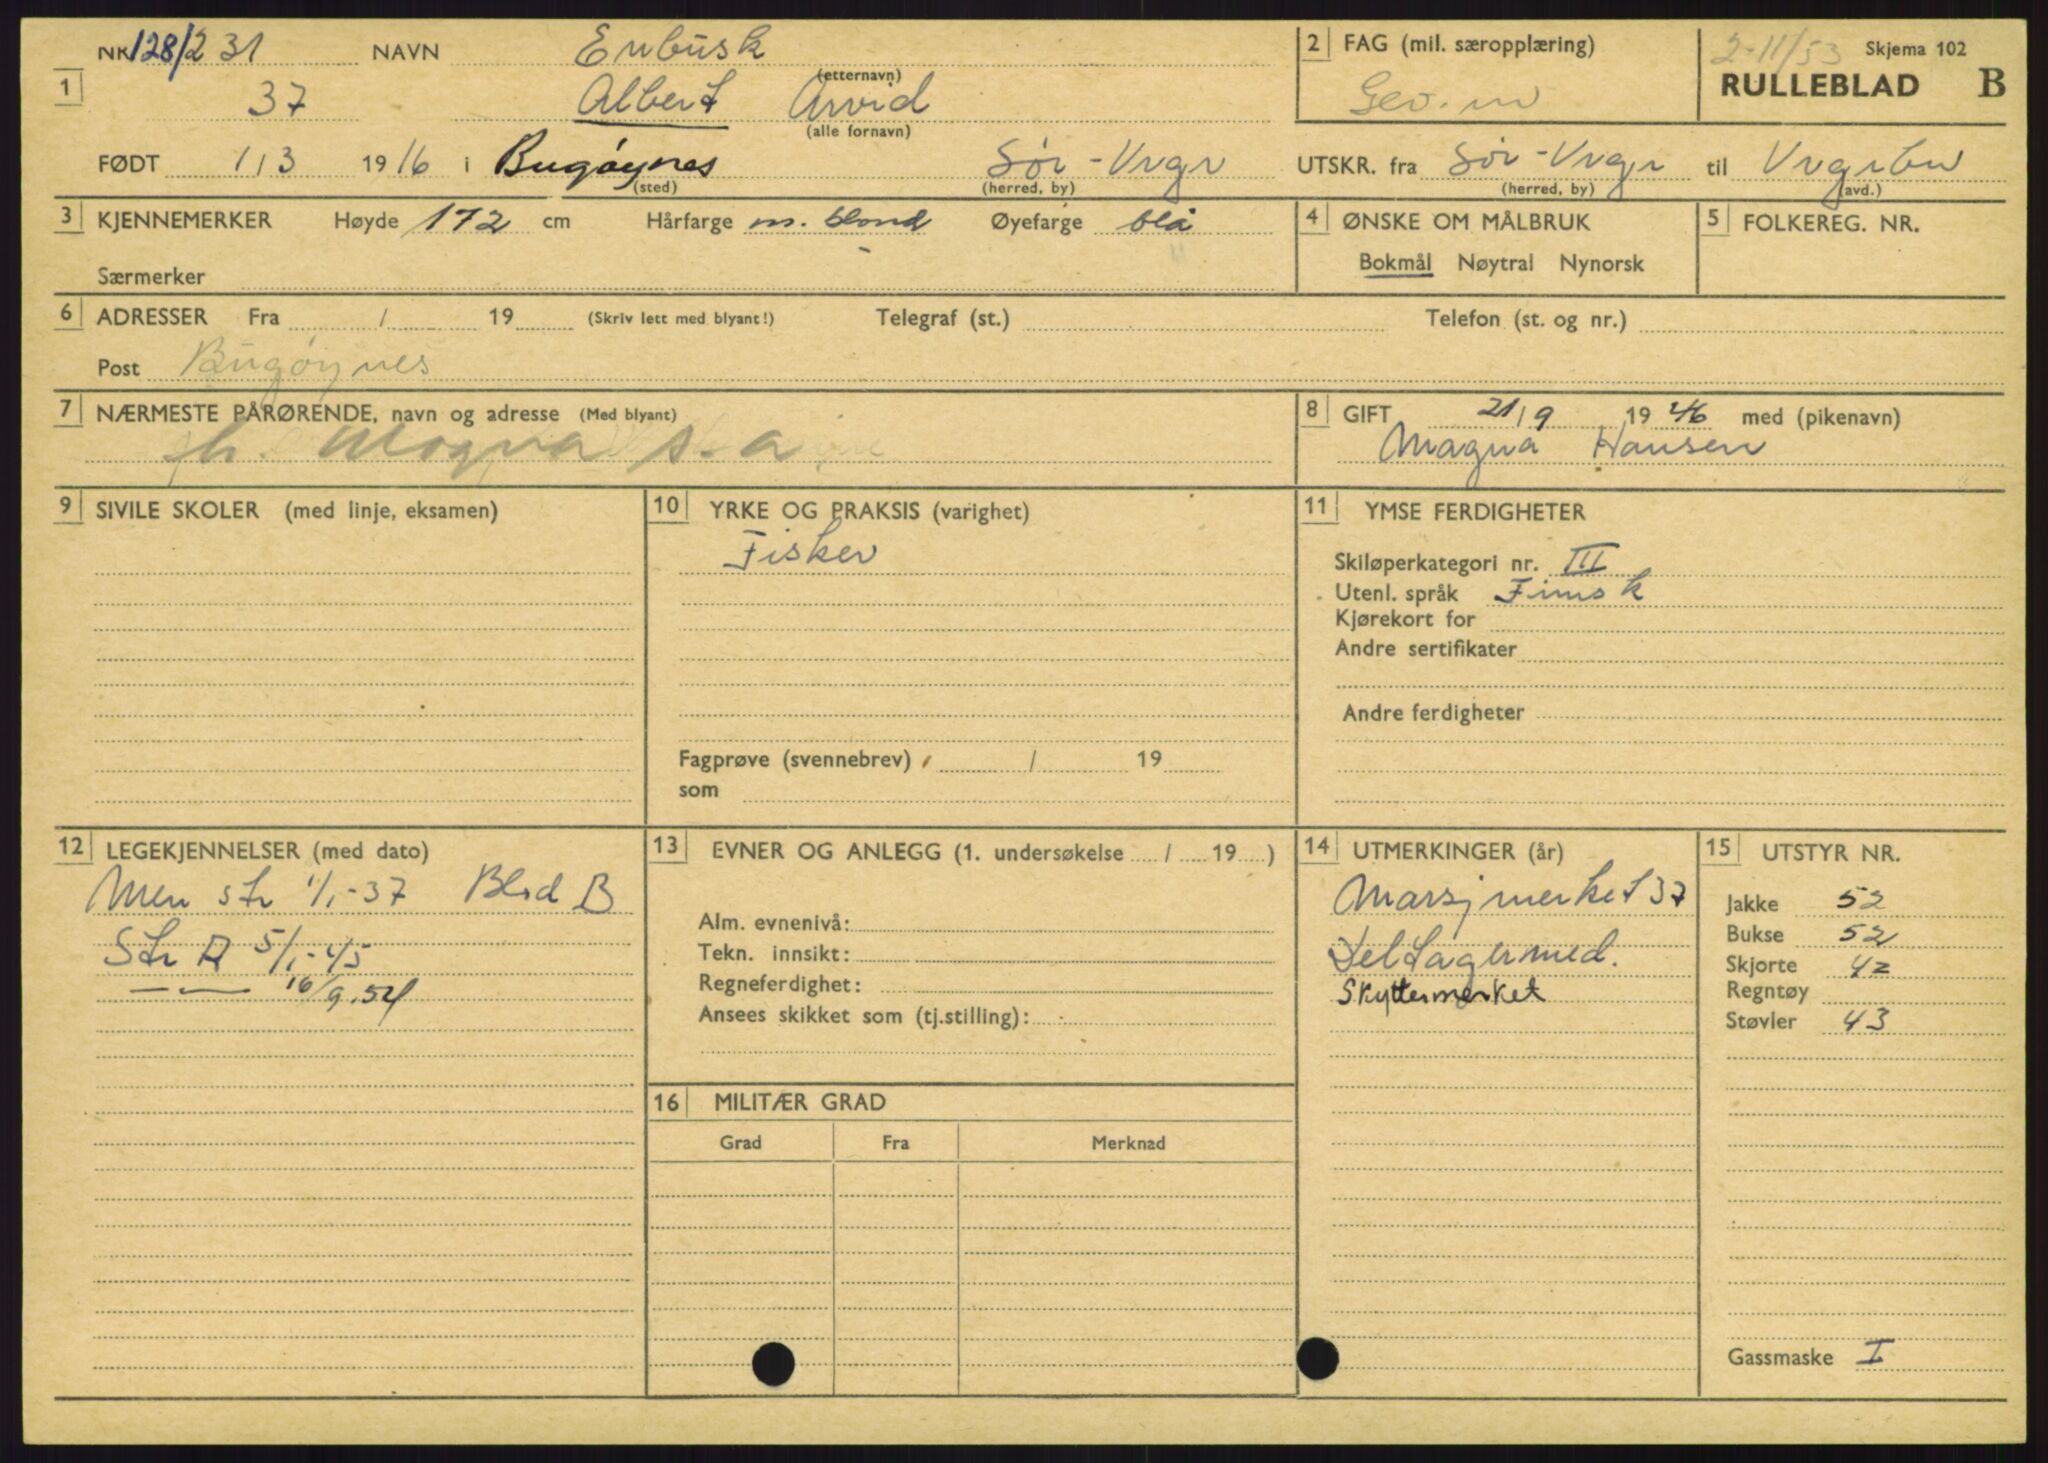 NR. 128/231 NAVN Enbusk
(etternavn)
1 37 Albert Arvid
(alle fornavn)
FØDT 1/3 1916 i Bugøynes Sør-Vrgr
(sted) (herred, by)
2 FAG (mil. særopplæring)
Gev. m
2-11/53 Skjema 102
RULLEBLAD B
UTSKR. fra Sør-Vrgr til Vrgrbn
(herred, by) (avd.)
3 KJENNEMERKER Høyde 172 cm Hårfarge m. blond Øyefarge blå
Særmerker
4 ØNSKE OM MÅLBRUK
Bokmål Nøytral Nynorsk
5 FOLKEREG. NR.
6 ADRESSER Fra / 19 (Skriv lett med blyant!) Telegraf (st.) Telefon (st. og nr.)
Post Bugøynes
7 NÆRMESTE PÅRØRENDE, navn og adresse (Med blyant)
h. Magna s.a.
8 GIFT 21/9 1946 med (pikenavn)
Magna Hansen
9 SIVILE SKOLER (med linje, eksamen)
10 YRKE OG PRAKSIS (varighet)
Fisker
Fagprøve (svennebrev) / 19
som
11 YMSE FERDIGHETER
Skiløperkategori nr. III
Utenl. språk Finsk
Kjørekort for
Andre sertifikater
Andre ferdigheter
12 LEGEKJENNELSER (med dato)
Men str 1/1-37 Blad B
Str A 5/1-45
— — 16/9.54
13 EVNER OG ANLEGG (1. undersøkelse / 19 )
Alm. evnenivå:
Tekn. innsikt:
Regneferdighet:
Ansees skikket som (tj.stilling):
14 UTMERKINGER (år)
Marsjmerket 37
Deltagermed.
Skyttermerket
15 UTSTYR NR.
Jakke 52
Bukse 52
Skjorte 42
Regntøy
Støvler 43
Gassmaske I
16 MILITÆR GRAD
Grad Fra Merknad